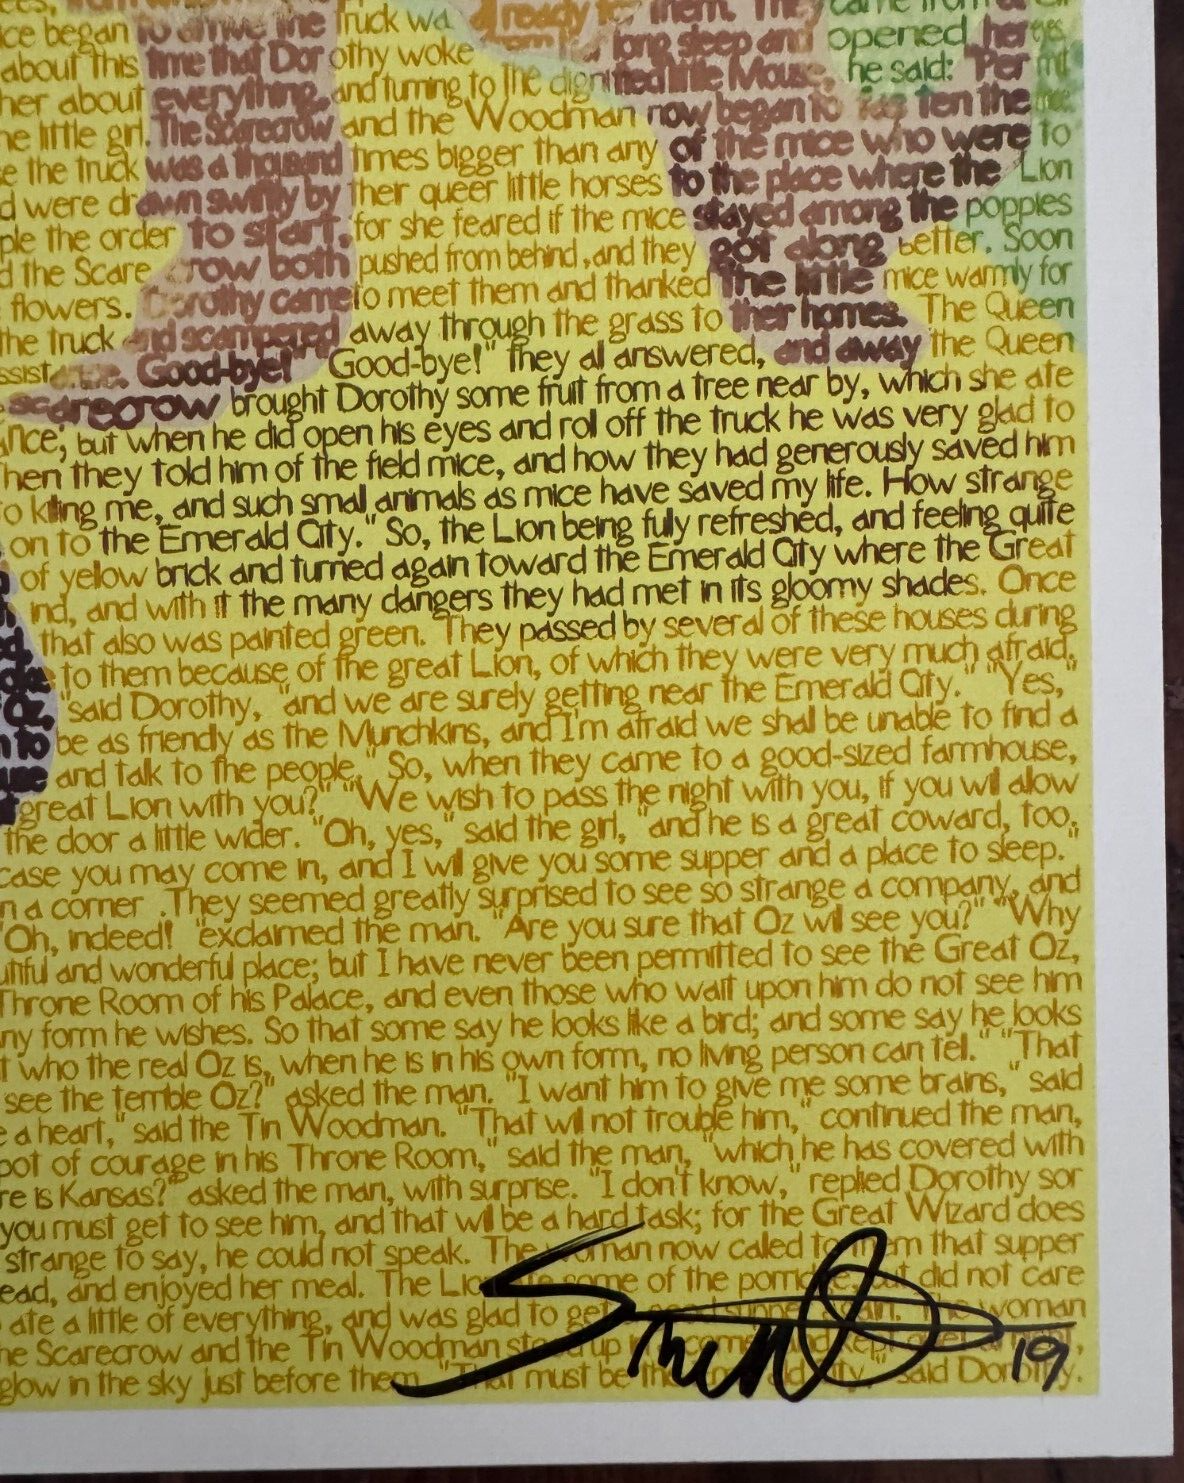 ice began to arrive the truck wa ready for them. They came from
about this time that Dorothy woke from her long sleep and opened her eyes
her about everything, and turning to the dignified little Mouse, he said: "Permit
he little girl. The Scarecrow and the Woodman now began to fasten the mice
e the truck was a thousand times bigger than any of the mice who were to
d were drawn swiftly by their queer little horses to the place where the Lion
ple the order to start, for she feared if the mice stayed among the poppies
d the Scarecrow both pushed from behind, and they got along better. Soon
flowers. Dorothy came to meet them and thanked the little mice warmly for
the truck and scampered away through the grass to their homes. The Queen
ssistance. Good-bye!" "Good-bye!" they all answered, and away the Queen
scarecrow brought Dorothy some fruit from a tree near by, which she ate
ance; but when he did open his eyes and roll off the truck he was very glad to
hen they told him of the field mice, and how they had generously saved him
o killing me, and such small animals as mice have saved my life. How strange
on to the Emerald City." So, the Lion being fully refreshed, and feeling quite
of yellow brick and turned again toward the Emerald City where the Great
ind, and with it the many dangers they had met in its gloomy shades. Once
that also was painted green. They passed by several of these houses during
to them because of the great Lion, of which they were very much afraid.
"said Dorothy, "and we are surely getting near the Emerald City." "Yes,"
be as friendly as the Munchkins, and I'm afraid we shall be unable to find a
and talk to the people." So, when they came to a good-sized farmhouse,
great Lion with you?" "We wish to pass the night with you, if you will allow
the door a little wider. "Oh, yes, "said the girl, "and he is a great coward, too;
case you may come in, and I will give you some supper and a place to sleep."
n a corner .They seemed greatly surprised to see so strange a company, and
"Oh, indeed! "exclaimed the man. "Are you sure that Oz will see you?" "Why
utiful and wonderful place; but I have never been permitted to see the Great Oz,
Throne Room of his Palace, and even those who wait upon him do not see him
ny form he wishes. So that some say he looks like a bird; and some say he looks
t who the real Oz is, when he is in his own form, no living person can tell." "That
see the terrible Oz?" asked the man. "I want him to give me some brains," said
e a heart," said the Tin Woodman. "That will not trouble him," continued the man,
pot of courage in his Throne Room," said the man, "which he has covered with
re is Kansas?" asked the man, with surprise. "I don't know, "replied Dorothy sor
you must get to see him, and that will be a hard task; for the Great Wizard does
strange to say, he could not speak. The woman now called to them that supper
ead, and enjoyed her meal. The Lion ate some of the porridge, but did not care
ate a little of everything, and was glad to get a good supper again. The woman
he Scarecrow and the Tin Woodman stood up in
glow in the sky just before them. "That must be the Emerald City," said Dorothy.
19